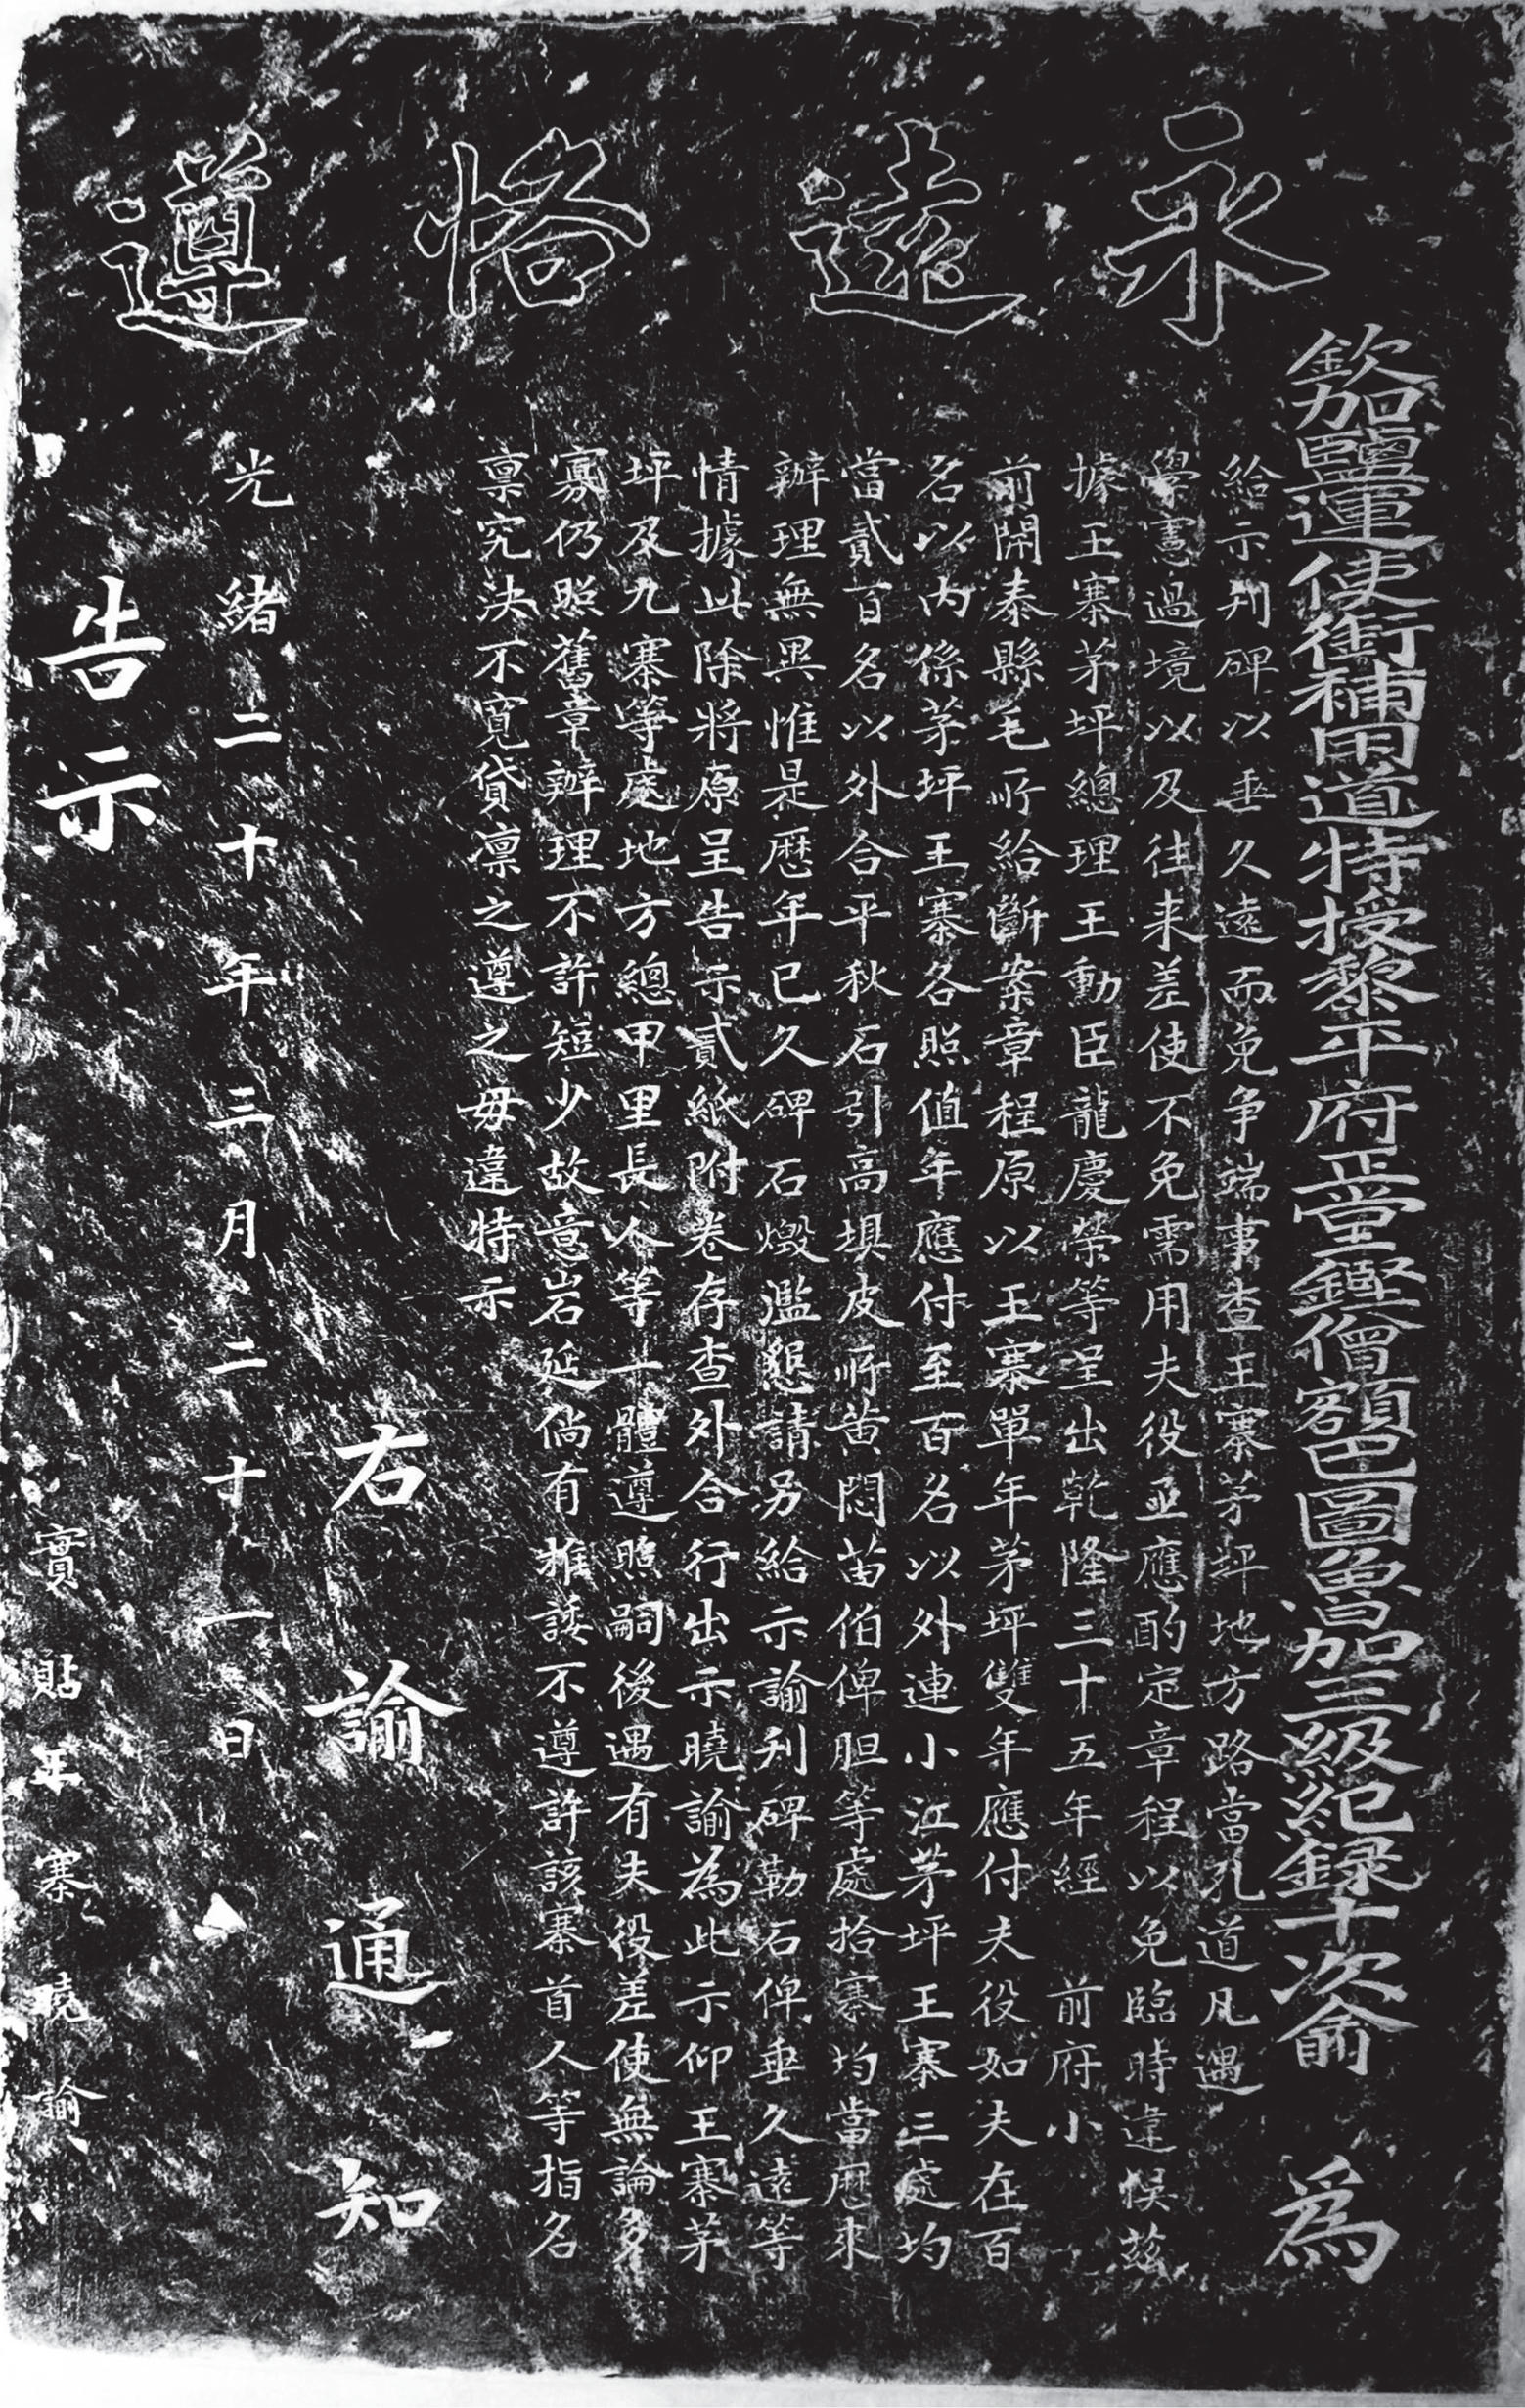 永遠恪遵
欽加鹽運使銜補用道特授黎平府正堂鏗僧額巴圖魯加三級紀録十次俞 爲
給示刋碑以垂久遠而免争端事查王寨茅坪地方路當孔道凡遇
學憲過境以及往来差使不免需用夫役並應酌定章程以免臨時違悮兹
據王寨茅坪總理王動臣龍慶榮等呈出乾隆三十五年經 前府小
前開泰縣毛所給斷案章程原以王寨單年茅坪雙年應付夫役如夫在百
名以内係茅坪王寨各照值年應付至百名以外連小江茅坪王寨三處均
當貳百名以外合平秋石引高埧皮所黄悶苗伯俾胆等處拾寨均當歴來
辦理無異惟是歴年已久碑石燬濫懇請另給示諭刋碑勒石俾垂久遠等
情據此除將原呈告示貳紙附卷存查外合行出示曉諭為此示仰王寨茅
坪及九寨等處地方總甲里長人等一體遵照嗣後遇有夫役差使無論多
寡仍照舊章辦理不許短少故意岩延倘有推諉不遵許該寨首人等指名
禀究决不寛貸凛之遵之毋違特示
右諭通知
光緒二十年三月二十一日
告示
實貼王寨曉諭